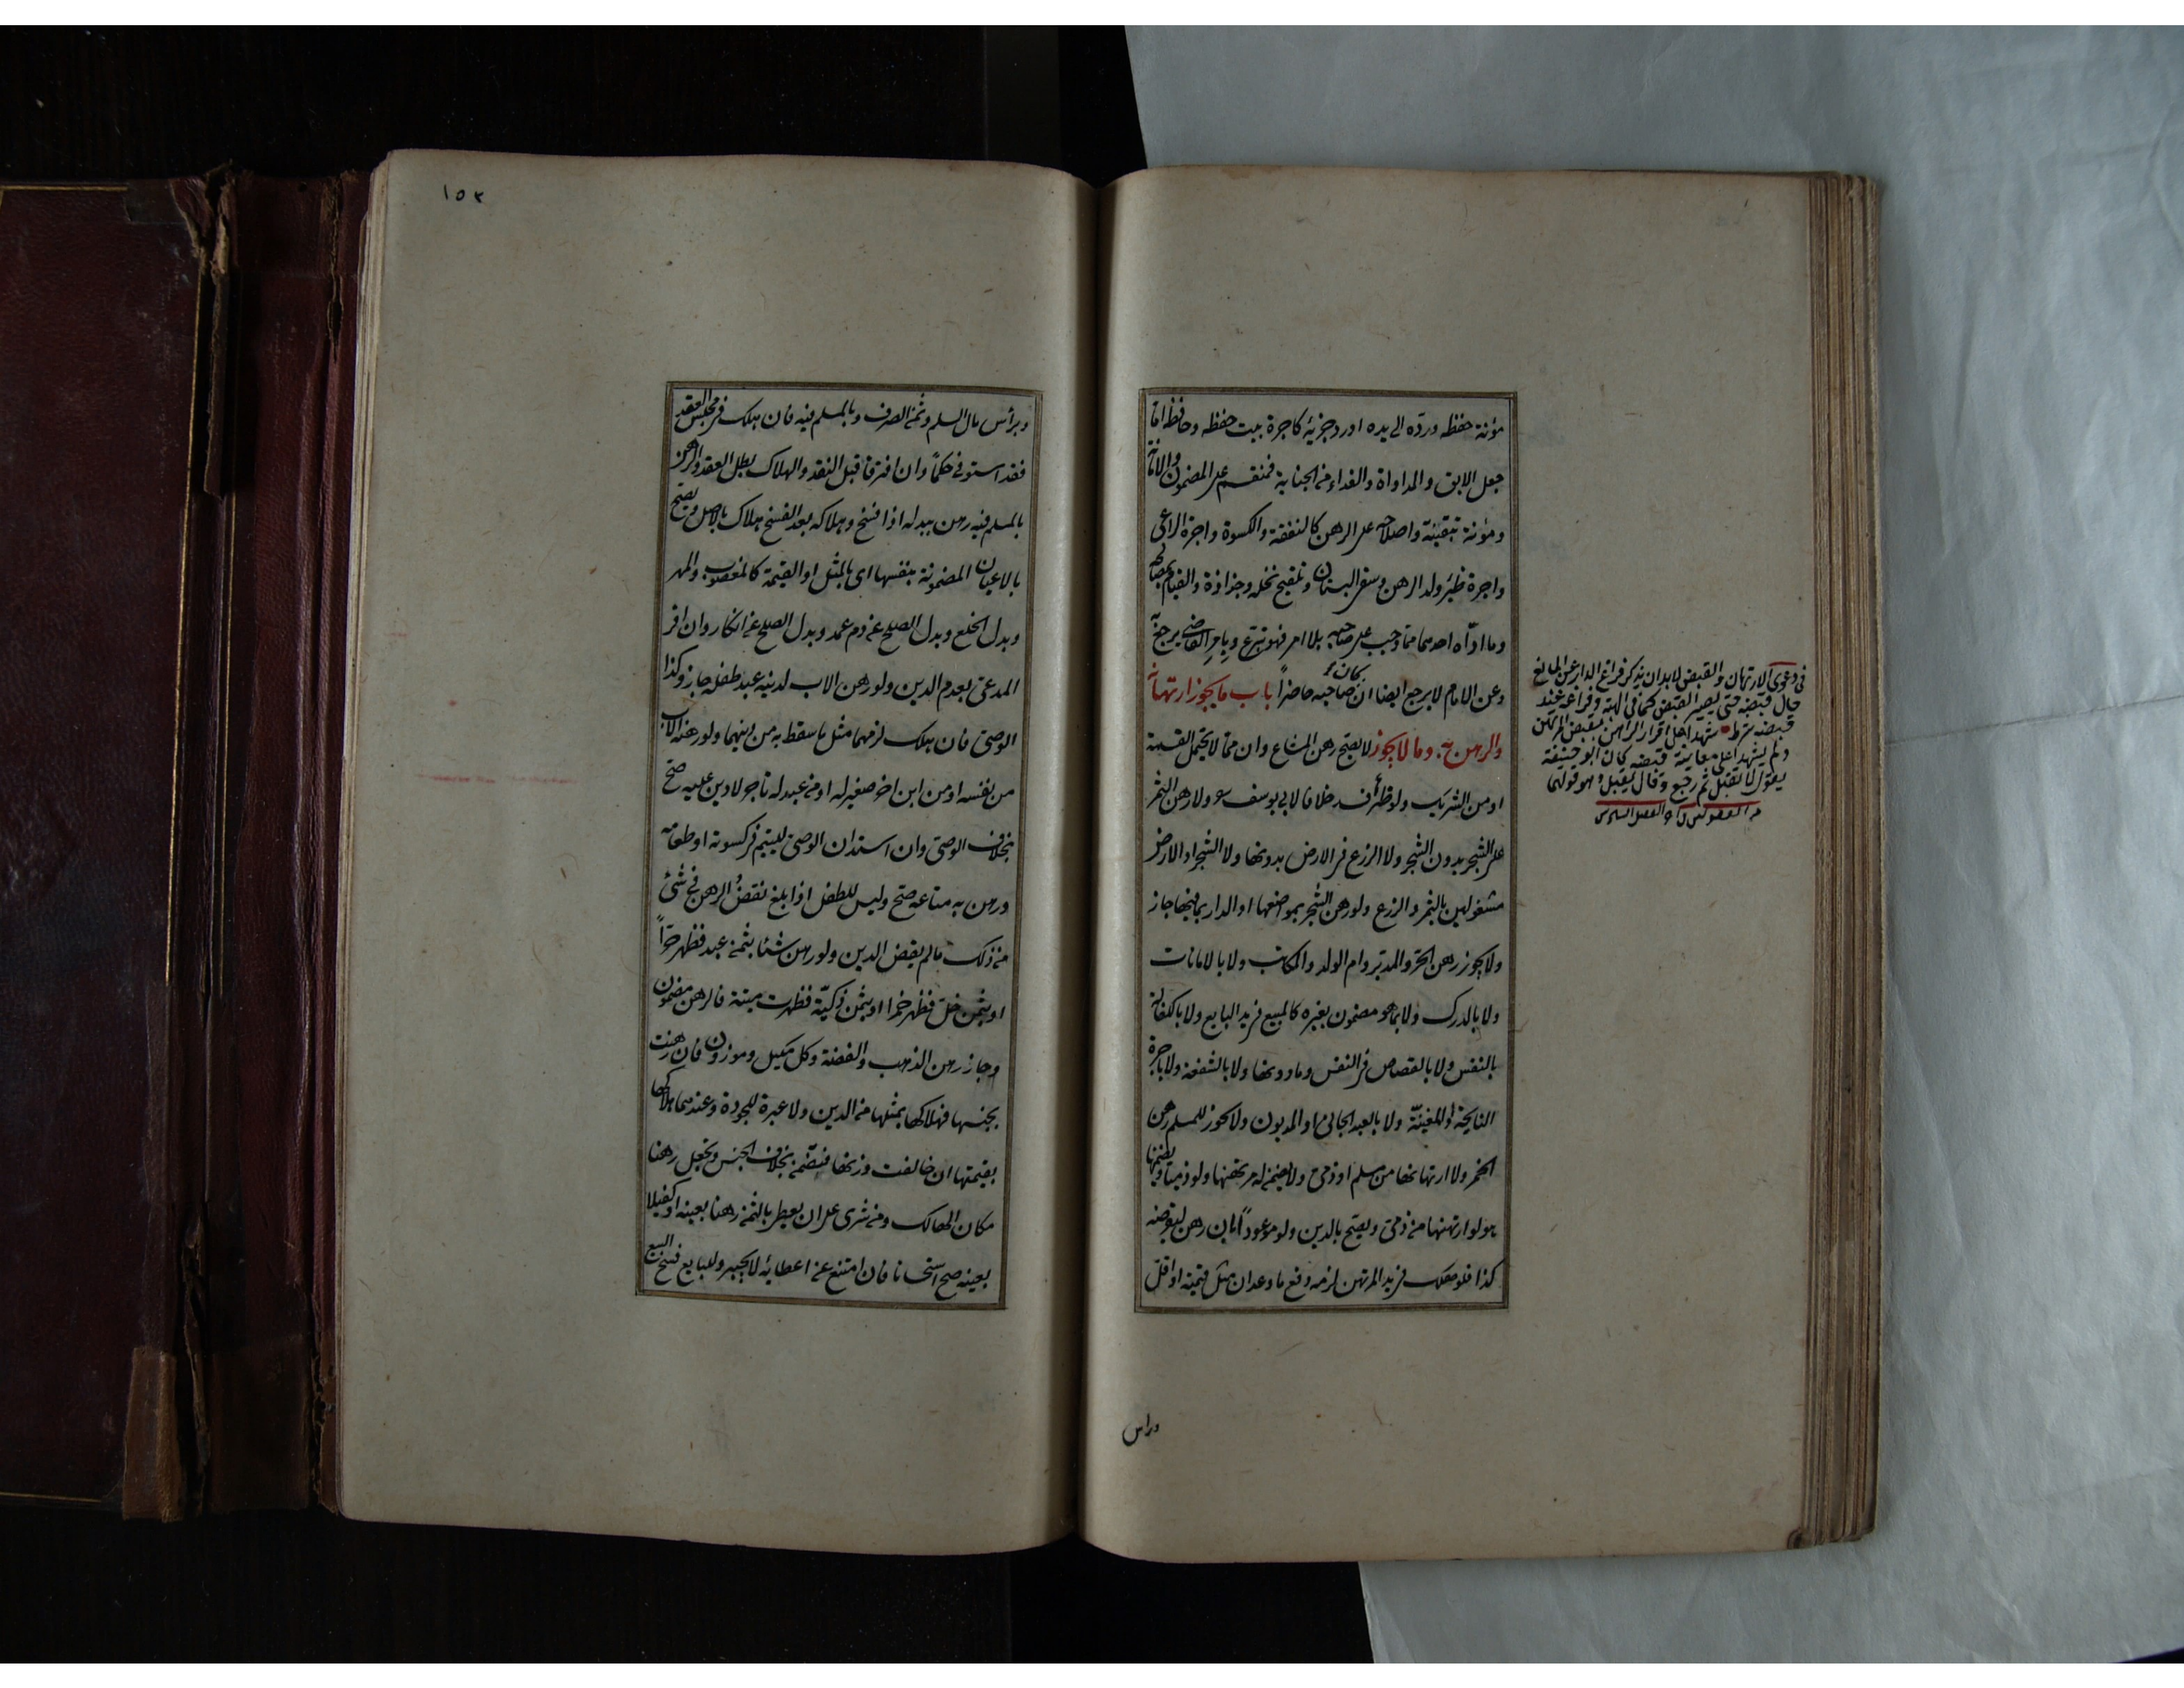 مؤنة حفظه وردّه الى يده اورد جزئه كاجرة بيت حفظه وحافظه اما
جعل الابق والمداواة والفداء من الجناية فمنقسم على المضمون والامانة
ومؤنة تبقيته واصلاحه على الراهن كالنفقة والكسوة واجرة الراعى
واجرة ظئر ولد الرهن وسقى البستان وتلقيح نخله وجذاذه والقيام بمصالحه
وما ادّاه احدهما مما وجب على صاحبه بلا امر فهو تبرع وبامر القاضى يرجع به
وعن الامام لا يرجع ايضا ان كان صاحبه حاضراً باب ما يجوز ارتهانه
والرهن به وما لا يجوز لا يصح رهن المشاع وان مما لا يحتمل القسمة
او من الشريك ولو طرأ فسد خلافا لابي يوسف ولا رهن الثمر
على الشجر بدون الشجر ولا الزرع فى الارض بدونها ولا الشجر او الارض
مشغولين بالثمر والزرع ولو رهن الشجر بمواضعها او الدار بما فيها جاز
ولا يجوز رهن الحرّ والمدبّر وام الولد والمكاتب ولا بالامانات
ولا بالدرك ولا بما هو مضمون بغيره كالمبيع فى يد البايع ولا بالكفالة
بالنفس ولا بالقصاص فى النفس وما دونها ولا بالشفعة ولا باجرة
النايحة والمغنيّة ولا بالعبد الجانى او المديون ولا يجوز للمسلم رهن
الخمر ولا ارتهانها من مسلم او ذمى ولا يضمن له مرتهنها ولو ذميا ويضمنها
هو لو ارتهنها من ذمى ويصحّ بالدين ولو موعوداً بان رهن ليقرضه
كذا فلو هلك فى يد المرتهن لزمه دفع ما وعد ان مثل قيمته او اقل
وراس
فى دعوى الارتهان والقبض لابد ان يذكر فراغ الدار عن المانع
حال قبضه حتى يصير القبض كما فى الهبة وفراغه عند
قبضه شرط شهدا على اقرار الراهن بقبض المرتهن
ولم يشهدا على معاينة قبضه كان ابو حنيفة
يقول لا تقبل ثم رجع وقال يقبل وهو قولهما
١٥٣
وبرأس مال السلم وثمن الصرف وبالمسلم فيه فان هلك فى مجلس العقد
فقد استوفى حكماً وان افترقا قبل النقد والهلاك بطل العقد والرهن
بالمسلم فيه رهن ببدله اذا فسخ وهلاكه بعد الفسخ هلاك بالاصل ويصح
بالاعيان المضمونة بنفسها اى بالمثل او القيمة كالمغصوب والمهر
وبدل الخلع وبدل الصلح عن دم عمد وبدل الصلح عن انكار وان اقر
المدعى بعدم الدين ولو رهن الاب لدينه عبد طفله جاز وكذا
الوصى فان هلك لزمهما مثل ما سقط به من دينهما ولو رهنه الاب
من نفسه او من ابن اخر صغير له او من عبد له تاجر لا دين عليه صح
بخلاف الوصى وان استدان الوصى لليتيم فى كسوته او طعامه
ورهن به متاعه صح وليس للطفل اذا بلغ نقض الرهن فى شئ
من ذلك ما لم يقض الدين ولو رهن شئا بثمن عبد فظهر حرّاً
او بثمن خل فظهر خمرا او بثمن ذكيّة فظهرت ميتة فالرهن مضمون
وجاز رهن الذهب والفضة وكل مكيل وموزون فان رهنت
بجنسها فهلاكها بمثلها من الدين ولا عبرة للجودة وعندهما هلاكها
بقيمتها ان خالفت وزنها فتضمن بخلاف الجنس وتجعل رهنا
مكان الهالك ومن شرى على ان يعطى بالثمن رهنا بعينه او كفيلا
بعينه صح استحسانا فان امتنع عن اعطائه لا يجبر وللبايع فسخ البيع